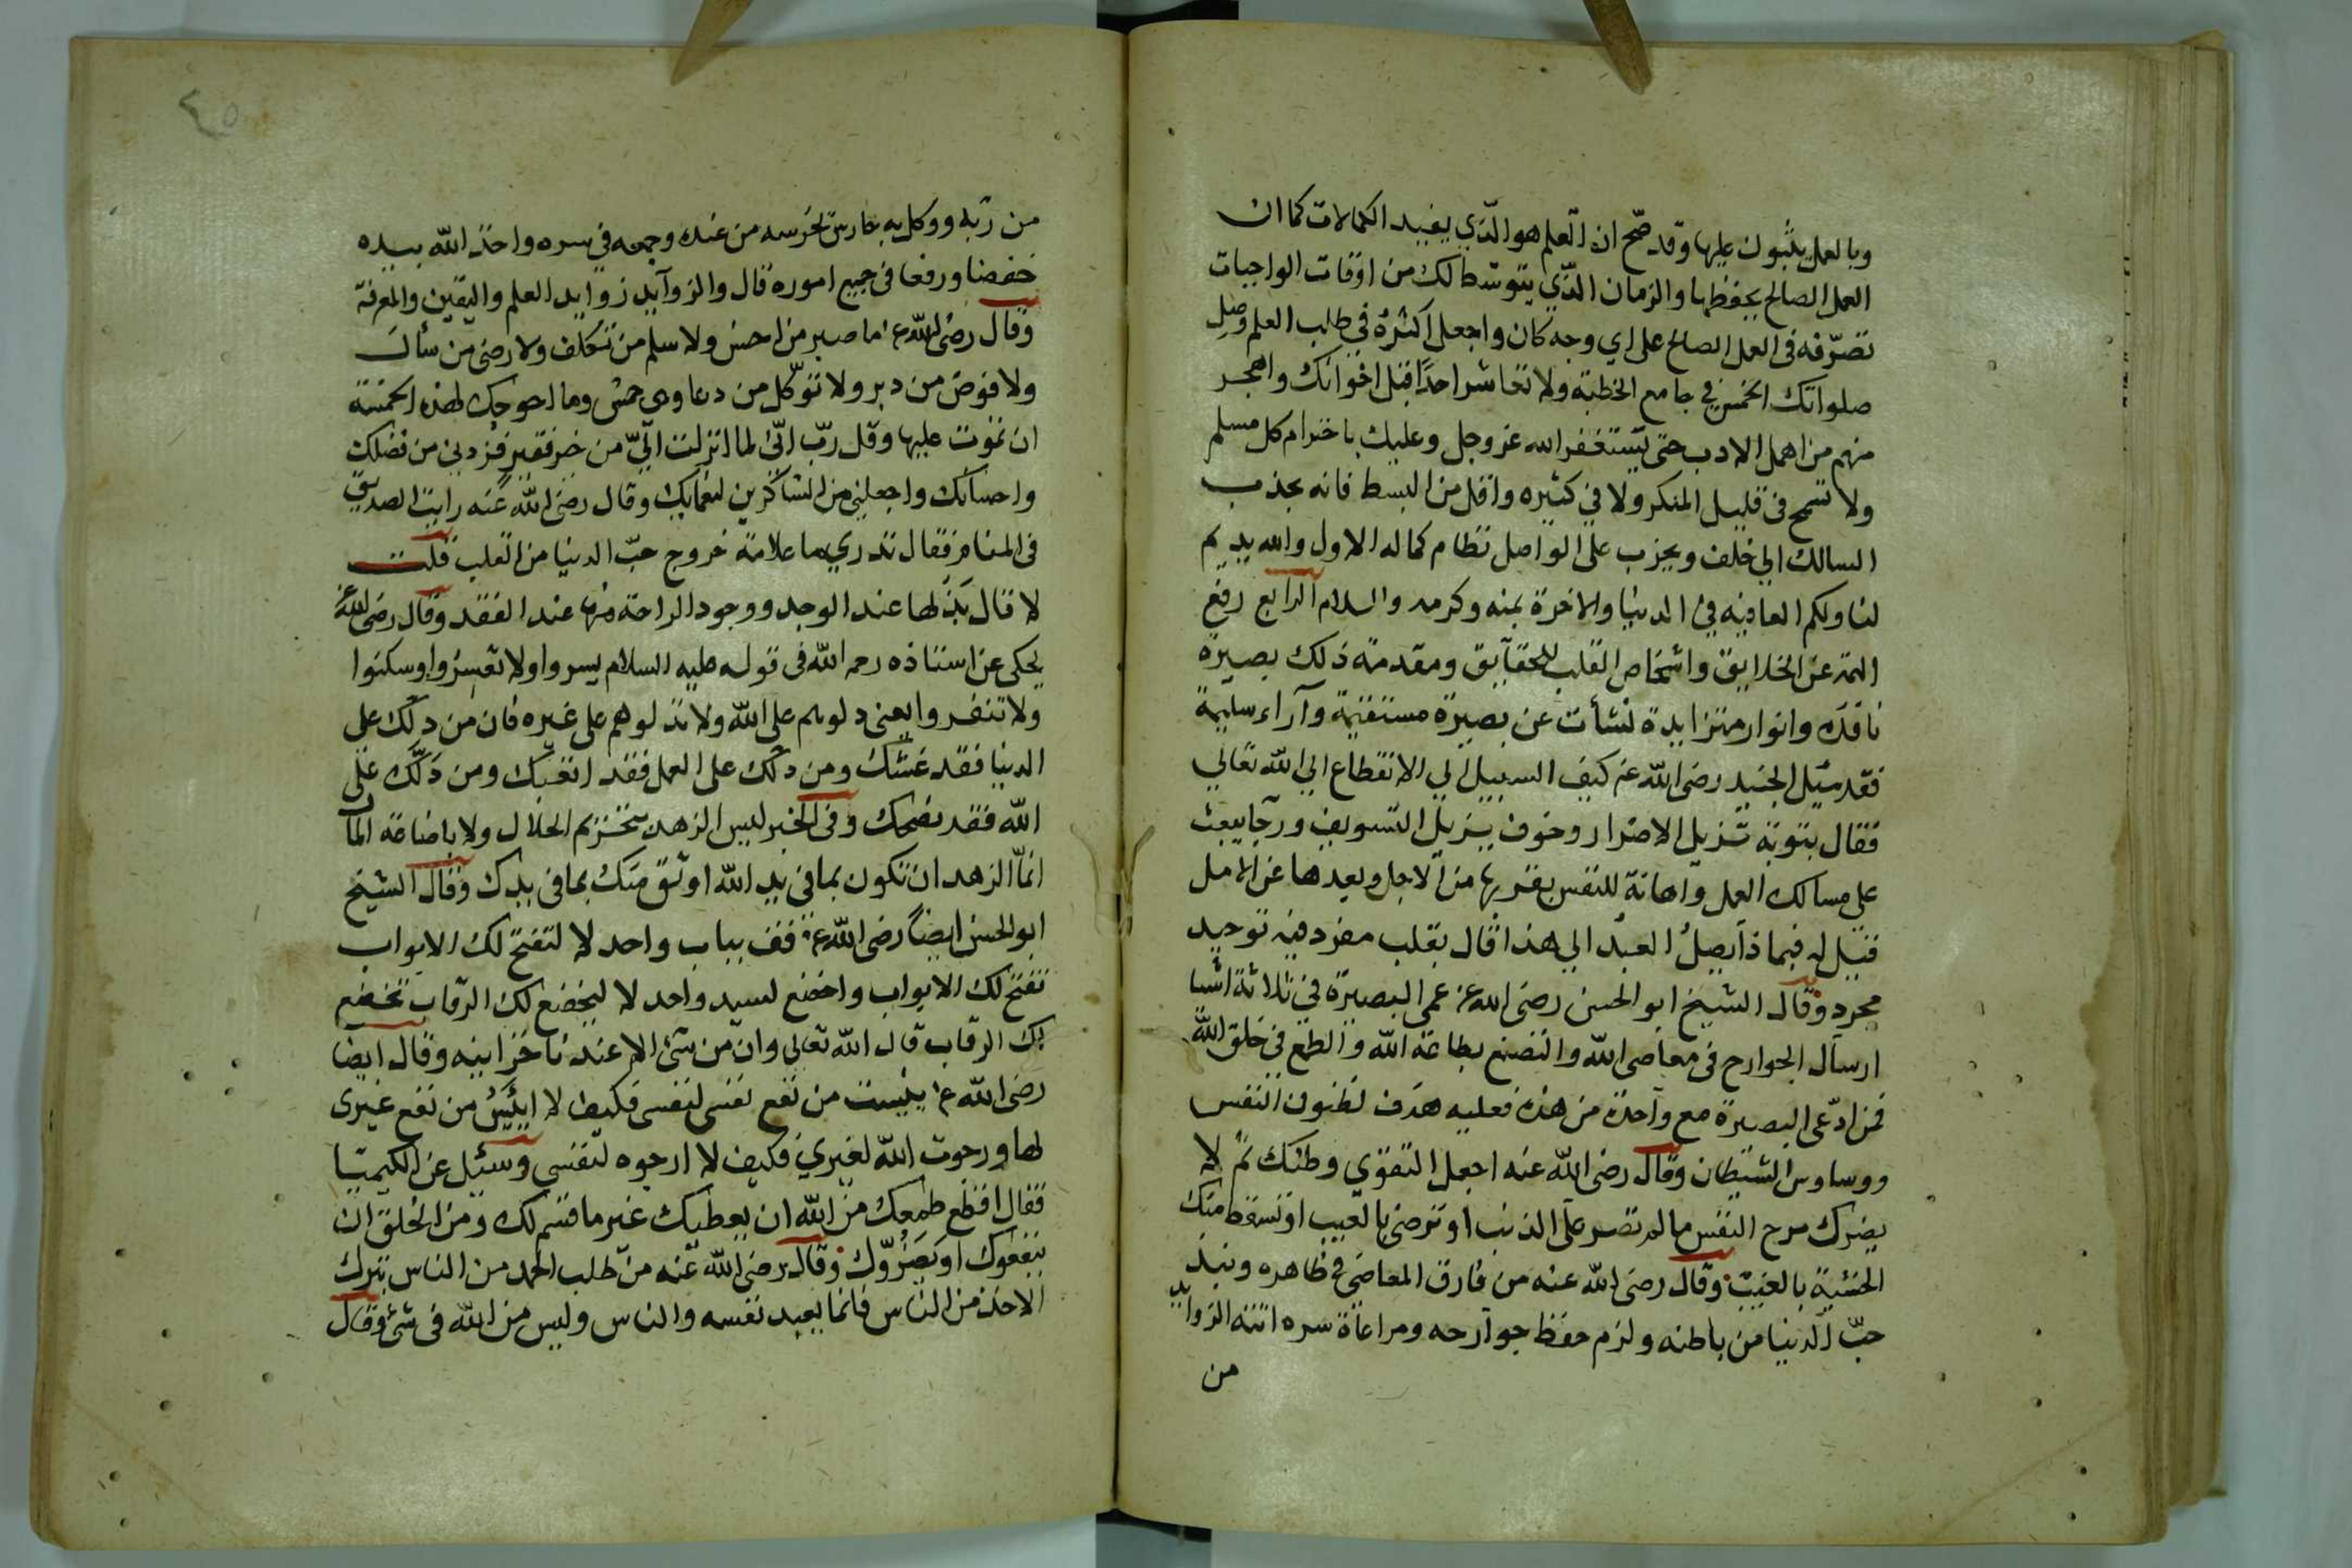 وبالعمل يثبون عليها وقد صح ان العلم هو الذي يفيد الكمالات كما ان
العمل الصالح يحفظها والزمان الذي يتوسط لك من اوقات الواجبات
تصرفه في العمل الصالح على اي وجه كان واجعل اكثره في طلب العلم وصل
صلواتك الخمس في جامع الخطبة ولا تعاشر احدا قبل اخوانك واهجر
منهم من اهمل الادب حتى يستغفر الله عز وجل وعليك باحترام كل مسلم
ولا تسمح في قليل المنكر ولا في كثيره واقل من البسط فانه يجذب
السالك الي خلف ويحزب على الواصل نظام كماله الاول والله يديم
لنا ولكم العافيه في الدنيا والاخرة بمنه وكرمه والسلام الرابع رفع
الهمة عن الخلايق واشخاص القلب للحقآيق ومقدمة ذلك بصيرة
نافذه وانوار متزايدة نشأت عن بصيرة مستقيمة وآراء سليمة
فقد سئل الجنيد رضى الله عنه كيف السبيل الي الانقطاع الي الله تعالي
فقال بتوبة تزيل الاصرار وخوف يزيل التسويف ورجآ يبعث
على مسالك العمل واهانة للنفس بقربها من الاجل وبعدها عن الامل
فقيل له فبماذا يصل العبد الي هذا قال بقلب مفرد فيه توحيد
مجرد وقال الشيخ ابو الحسن رضى الله عنه عمى البصيرة في ثلاثة اشيا
ارسال الجوارح في معاصي الله والتصنع بطاعة الله والطمع في خلق الله
فمن ادعى البصيرة مع واحدة من هذه فعليه هدف لظنون النفس
ووساوس الشيطان وقال رضى الله عنه اجعل التقوي وطنك ثم لا
يضرك مرح النفس مالم تصر على الذنب او ترضى بالعيب او تسقط منك
الخشية بالغيب وقال رضى الله عنه من فارق المعاصى في ظاهره ونبذ
حب الدنيا من باطنه ولزم حفظ جوارحه ومراعاة سره اتته الزوايد
من
٤٥
من ربه ووكل به حارس يحرسه من عنده وجمعه في سره واخذ الله بيده
خفضا ورفعا في جميع اموره قال والزوآيد زوايد العلم واليقين والمعرفة
وقال رضى الله عنه ما صبر من احسن ولا سلم من تكلف ولا رضى من سأل
ولا فوض من دبر ولا توكل من دعا وهي خمس وما احوجك لهذه الخمسة
ان تموت عليها وقل رب اني لما انزلت الي من خير فقير فزدني من فضلك
واحسانك واجعلني من الشاكرين لنعمايك وقال رضى الله عنه رايت الصديق
في المنام فقال تدري ما علامة خروج حب الدنيا من القلب قلت
لا قال بذلها عند الوجد ووجود الراحة منها عند الفقد وقال رضى الله عنه
يحكى عن استاذه رحمه الله في قوله عليه السلام يسروا ولا تعسروا وسكنوا
ولا تنفروا يعني دلوهم على الله ولا تدلوهم على غيره فان من دلك على
الدنيا فقد غشك ومن دلك على العمل فقد اتعبك ومن دلك على
الله فقد نصحك وفي الخبر ليس الزهد بتحريم الحلال ولا باضاعة المال
انما الزهد ان تكون بما في يد الله اوثق منك بما في يدك وقال الشيخ
ابو الحسن ايضا رضى الله عنه قف بباب واحد لا لتفتح لك الابواب
تفتح لك الابواب واخضع لسيد واحد لا ليخضع لك الرقاب تخضع
لك الرقاب قال الله تعالي وان من شئ الا عندنا خزاينه وقال ايضا
رضى الله عنه يئست من نفع نفسي لنفسي فكيف لا ايئس من نفع غيري
لها ورجوت الله لغيري فكيف لا ارجوه لنفسي وسئل عن الكيميا
فقال اقطع طمعك من الله ان يعطيك غير ما قسم لك ومن الخلق ان
ينفعوك او يضروك وقال رضى الله عنه من طلب الحمد من الناس بترك
الاخذ من الناس فانما يعبد نفسه والناس وليس من الله في شئ وقال